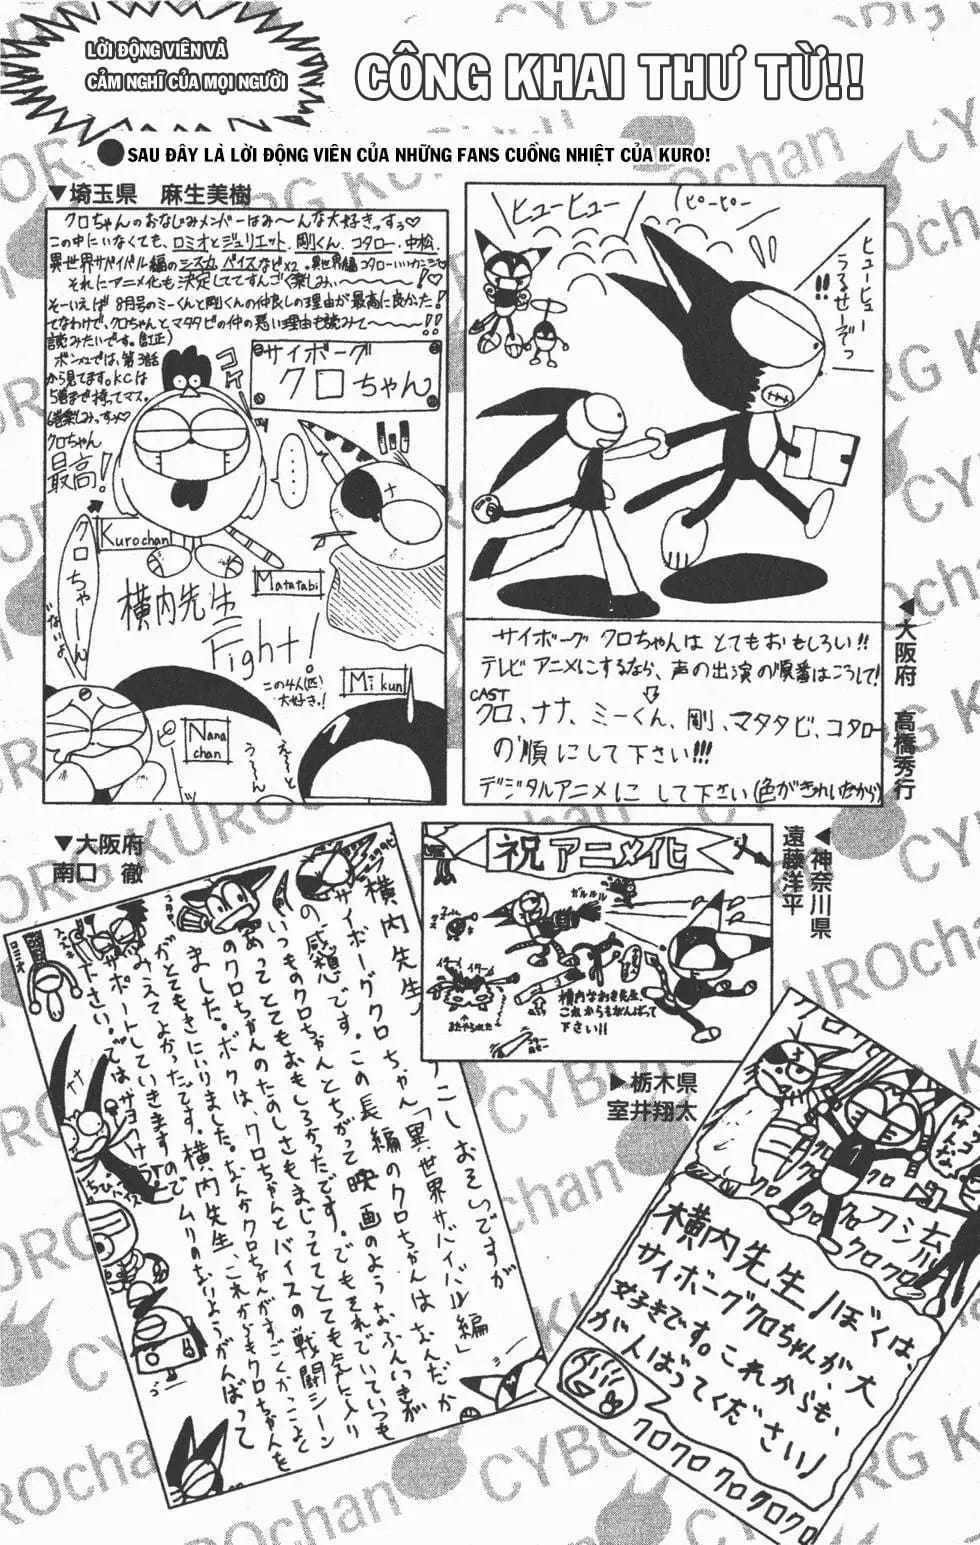 LỜI ĐỘNG VIÊN VÀ
CẢM NGHĨ CỦA MỌI NGƯỜI
CÔNG KHAI THƯ TỪ!!
●SAU ĐÂY LÀ LỜI ĐỘNG VIÊN CỦA NHỮNG FANS CUỒNG NHIỆT CỦA KURO!
▼埼玉県 麻生美樹
クロちゃんのおなじみメンバーはみ〜んな大好きっすぅ♡
この中にいなくても、ロミオとジュリエット、剛くん、コタロー、中松、
それにアニメ化も決定しててすんごく楽しみぃ〜〜〜!♡
そーいえば8月号のミーくんと剛くんの仲良しの理由が最高に良かった!
てなわけで、クロちゃんとマタタビの仲の悪い理由も読みて〜〜〜!!
読みたいです。(訂正)
ボンボンでは、第3話
から見てます。KCは
5巻まで持ってマス。
クロちゃん
最高!
コケー
サイボーグ
クロちゃん
Kurochan
Matatabi
横内先生
Fight!
この4人(匹)
大好き。!
Mi kun
Nana
chan
クロちゃーん
え〜と
う〜ん
ヒューヒュー
ピーピー
ヒューヒュー
うるせーぞっ
!!
サイボーグ クロちゃんは とてもおもしろい!!
テレビ アニメにするなら、声の出演の順番はこうして!
CAST
クロ、ナナ、ミーくん、剛、マタタビ、コタロー
の順にして下さい!!!
デジタルアニメに して下さい(色がきれいだから)
◀大阪府 高橋秀行
▼大阪府
南口 徹
横内先生へ
すこしおそいですが
サイボーグクロちゃん「異世界サバイバル編」
の感想です。この長編のクロちゃんはなんだか
いつものクロちゃんとちがって映画のようなふんいきが
あってとてもおもしろかったです。でもそれでいていつも
のクロちゃんのたのしさもまじっててとても気に入り
ました。ボクは、クロちゃんとバイスの戦闘シーン
がとてもきにいりました。なんかクロちゃんがすごくかっこよく
みえてよかったです。横内先生、これからもクロちゃんを
サポートしていきますのでムリのないようがんばって
下さい。ではサヨナラ
ナナ
ロミオ
祝 アニメ化
ガルルル
横内なおき先生、
これからもがんばって
下さい!!
◀神奈川県
遠藤洋平
▶栃木県
室井翔太
横内先生!ぼくは、
サイボーグクロちゃんが、大
好きです。これからも、
がんばってください!
クロクロクロクロクロ
CYBORG KUROchan